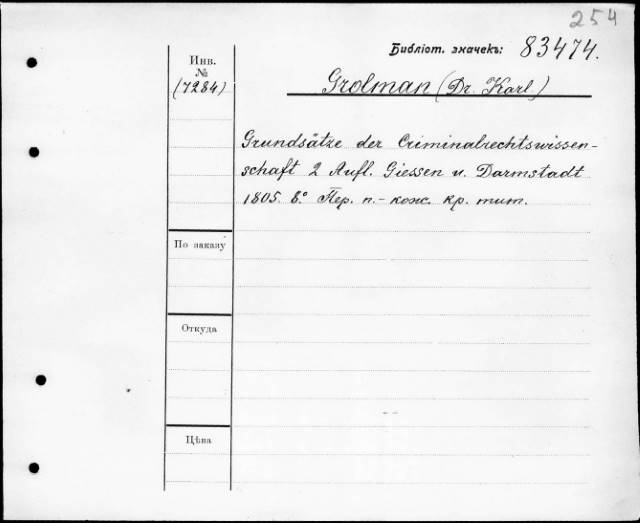 254
Библіот. значекъ: 83474.
Инв.
№
(7284)
Grolman (Dr. Karl)
Grundsätze der Criminalrechtswissen-
schaft 2 Aufl. Giessen u. Darmstadt
1805. 8.° Пер. п.-кож. кр. тит.
По заказу
Откуда
Цѣна